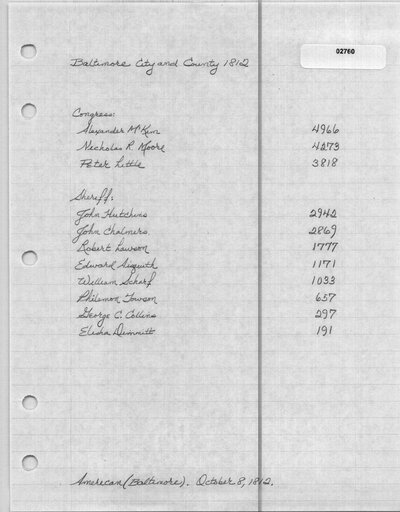 02760
Baltimore City and County 1812
Congress:
Alexander McKim 4966
Nicholas R. Moore 4273
Peter Little 3818
Sheriff:
John Hutchins 2942
John Chalmers 2869
Robert Lawson 1777
Edward Aisquith 1171
William Scharf 1033
Philemon Towson 657
George C. Collins 297
Elisha Dimmitt 191
American (Baltimore). October 8, 1812.